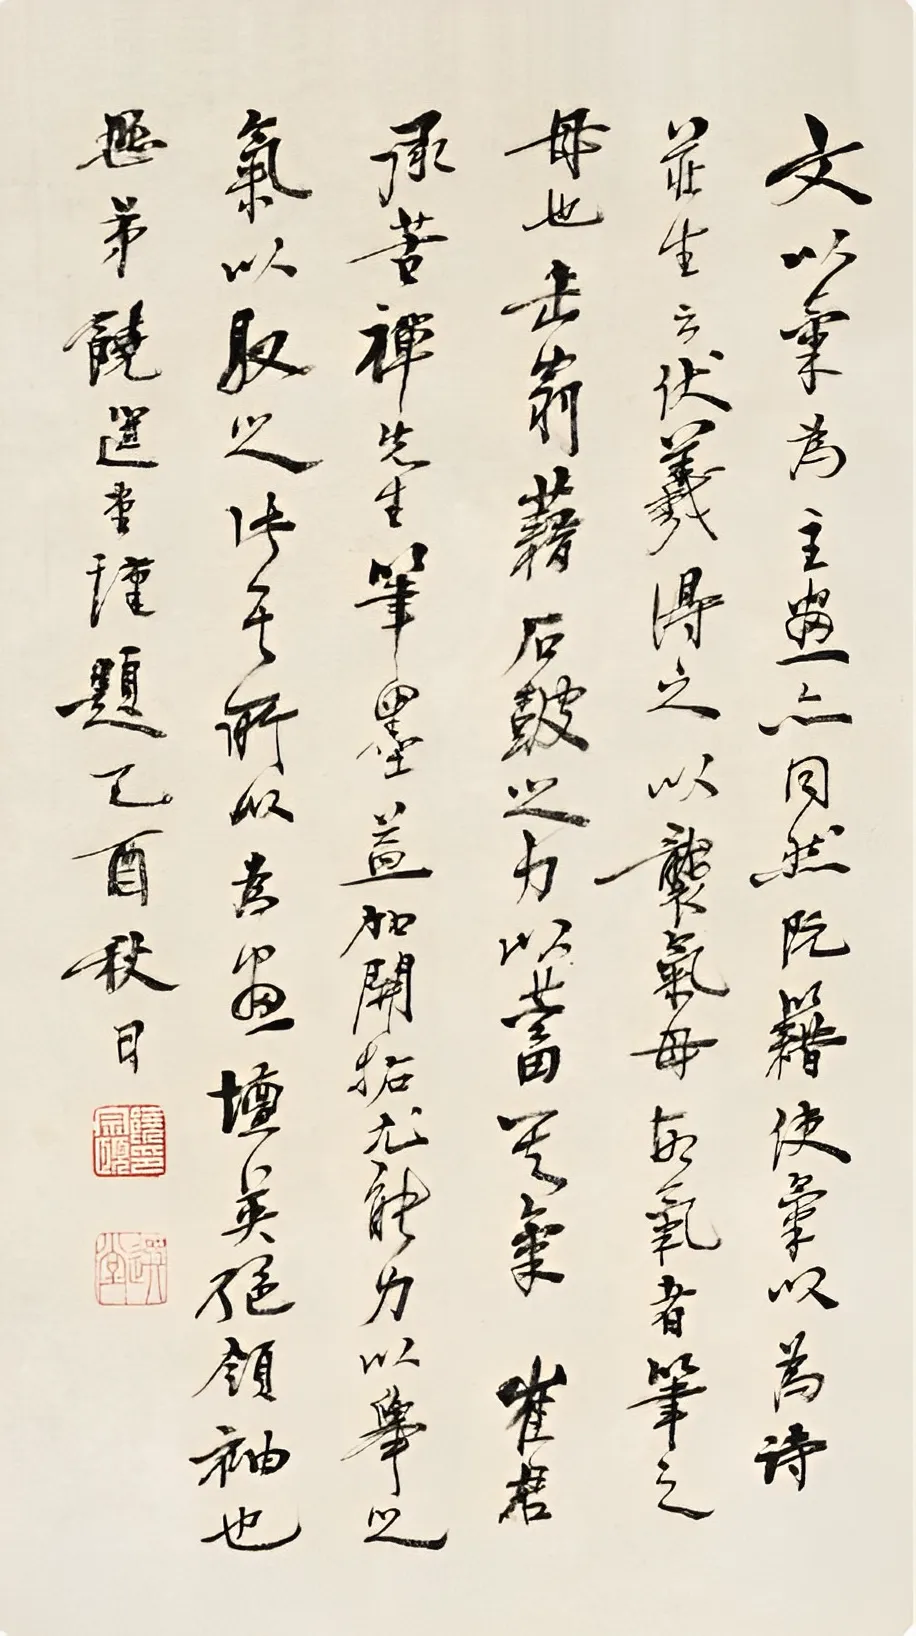 文以氣為主畫亦同然阮籍使氣以為詩
莊生云伏羲得之以襲氣母故氣者筆之
母也缶翁藉石鼓之力以蓄其氣 崔君
承苦禪先生筆墨益加開拓尤能力以舉之
氣以馭之此其所以為畫壇英絕領袖也
愚弟饒選堂謹題乙酉秋日
饒宗頤印
選堂